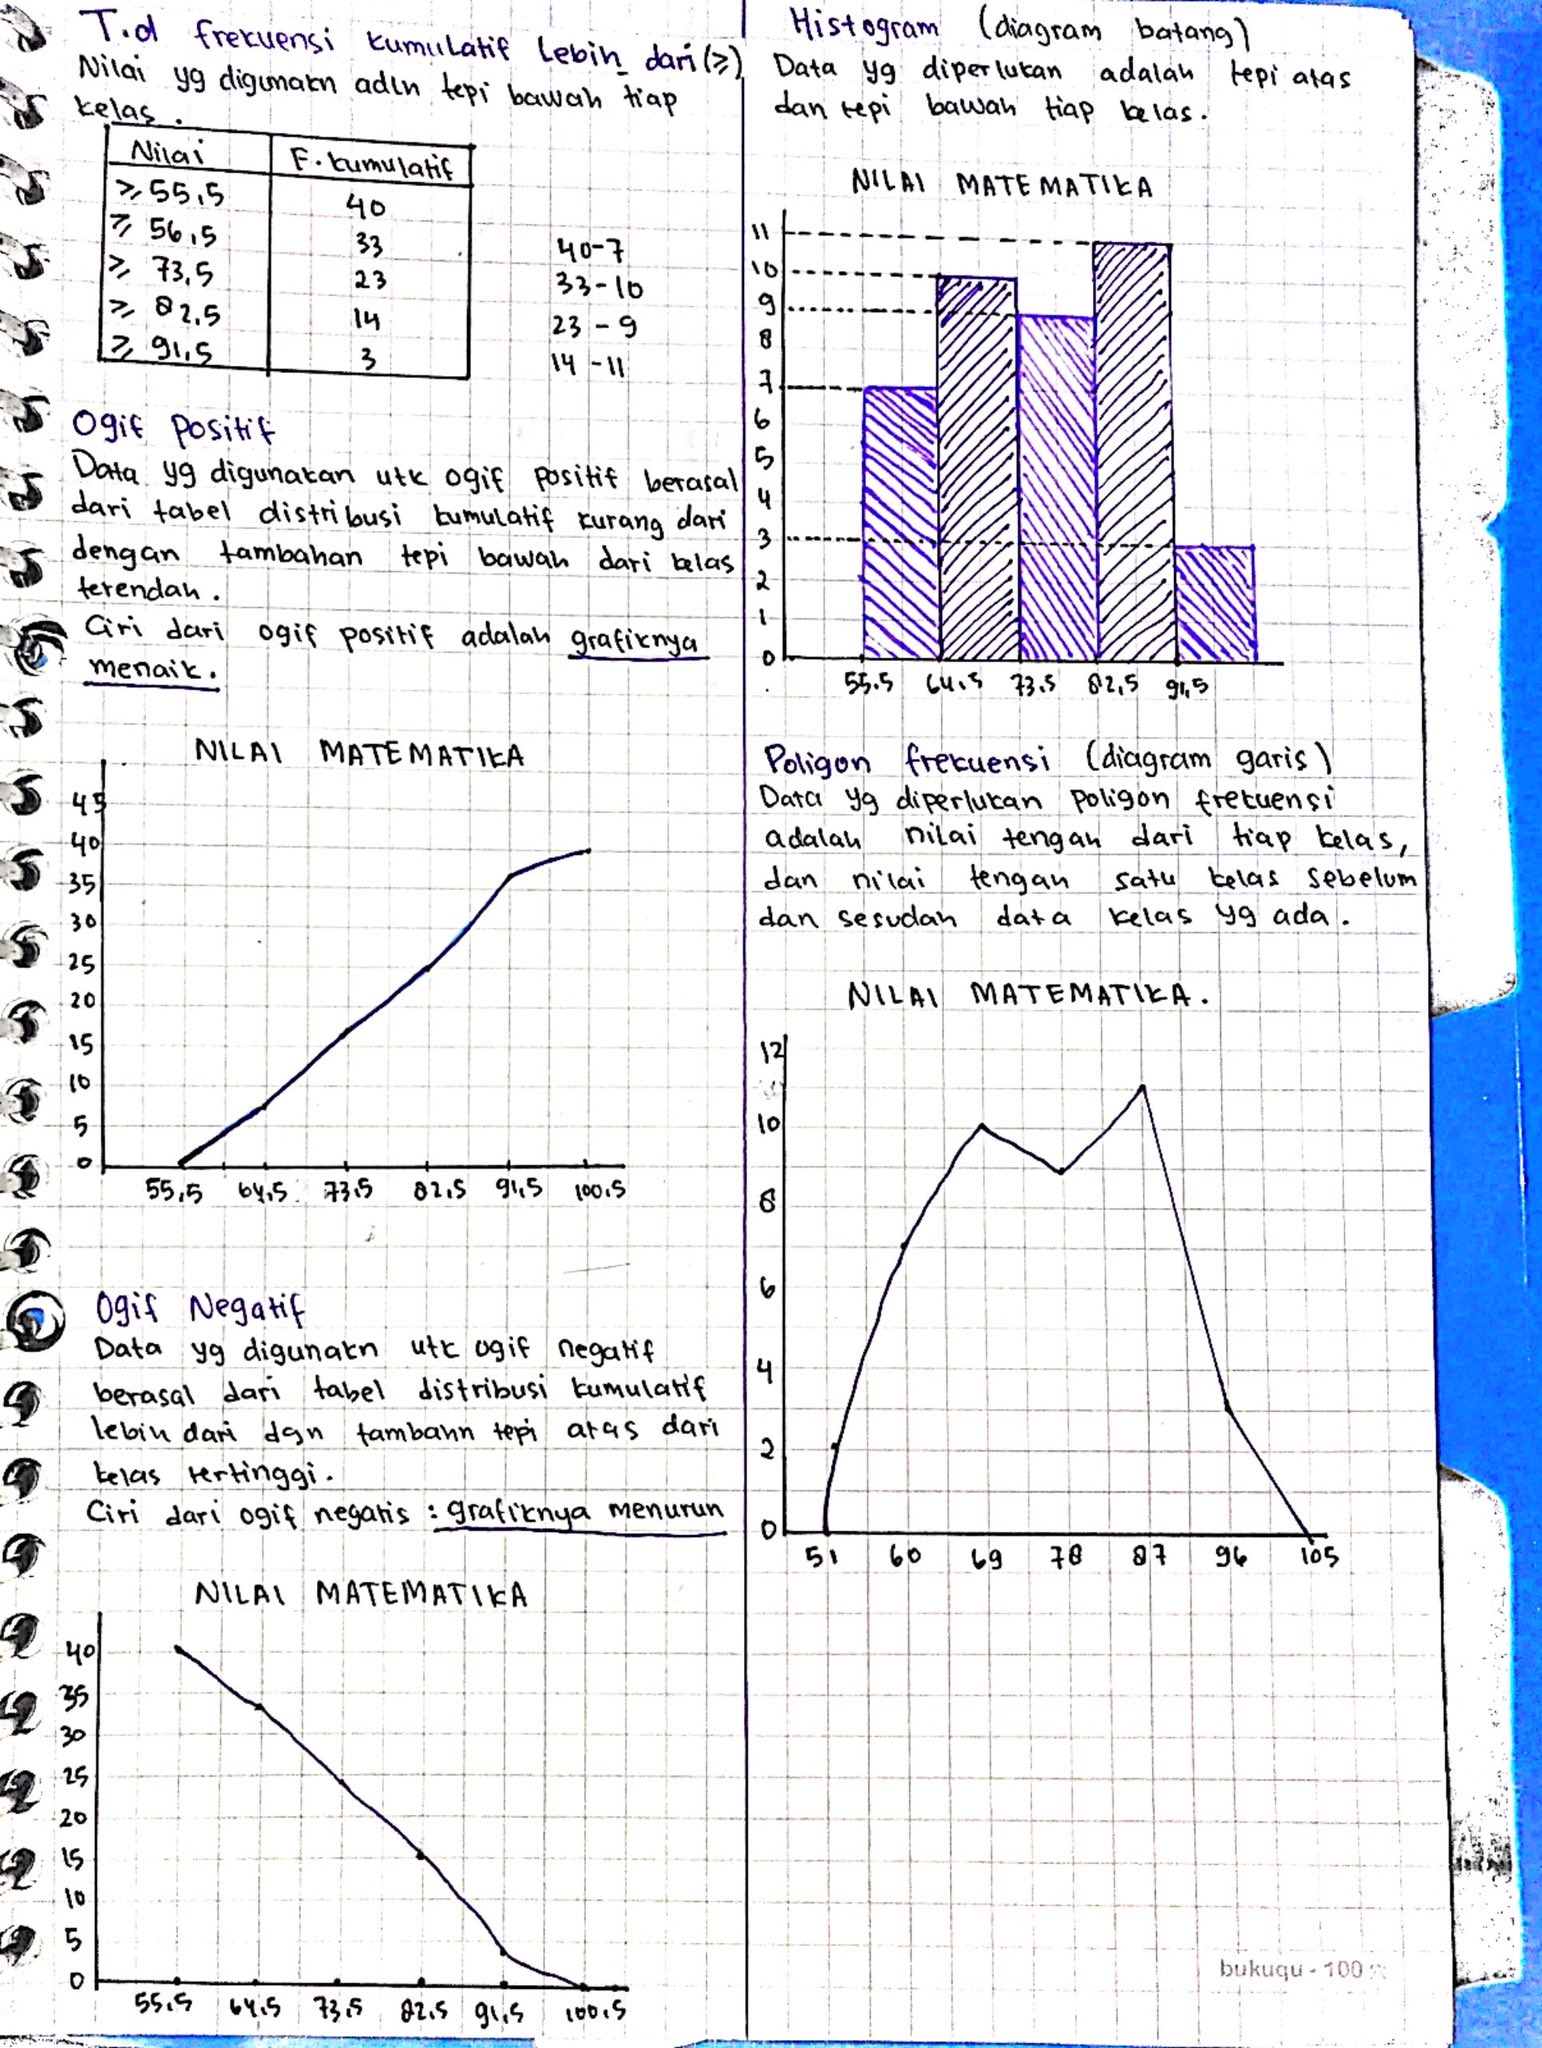 T.d frekuensi kumulatif Lebih dari (≥)
Nilai yg digunakn adln tepi bawah tiap
kelas.
Nilai F. kumulatif
≥ 55,5 40
≥ 56,5 33 40-7
≥ 73,5 23 33-10
≥ 82,5 14 23-9
≥ 91,5 3 14-11
Ogif Positif
Data yg digunakan utk ogif positif berasal
dari tabel distribusi kumulatif kurang dari
dengan tambahan tepi bawah dari kelas
terendah.
Ciri dari ogif positif adalah grafiknya
menaik.
NILAI MATEMATIKA
45
40
35
30
25
20
15
10
5
0
55,5 64,5 73,5 82,5 91,5 100,5
Ogif Negatif
Data yg digunakn utk ogif negatif
berasal dari tabel distribusi kumulatif
lebih dari dgn tambahn tepi atas dari
kelas tertinggi.
Ciri dari ogif negatis : grafiknya menurun
NILAI MATEMATIKA
40
35
30
25
20
15
10
5
0
55,5 64,5 73,5 82,5 91,5 100,5
Histogram (diagram batang)
Data yg diperlukan adalah tepi atas
dan tepi bawah tiap kelas.
NILAI MATEMATIKA
11
10
9
8
7
6
5
4
3
2
1
0
55,5 64,5 73,5 82,5 91,5
Poligon frekuensi (diagram garis)
Data yg diperlukan poligon frekuensi
adalah nilai tengah dari tiap kelas,
dan nilai tengah satu kelas sebelum
dan sesudah data kelas yg ada.
NILAI MATEMATIKA.
12
10
8
6
4
2
0
51 60 69 78 87 96 105
bukuqu - 100